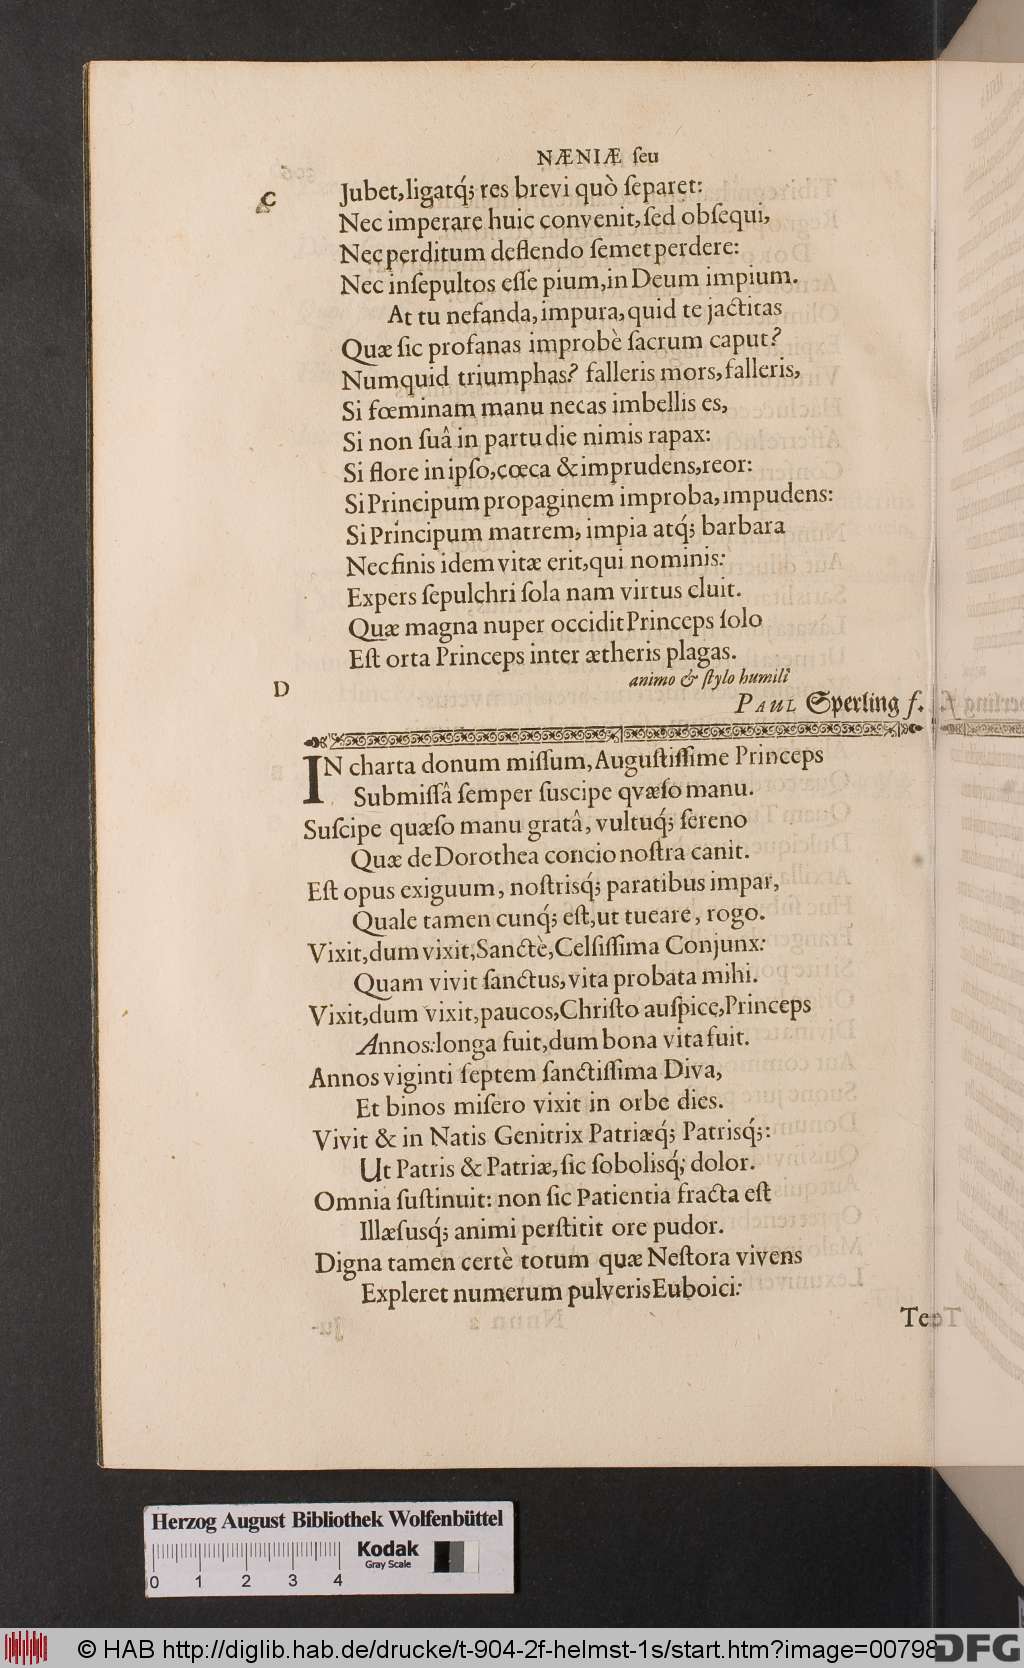 NÆNIÆ ſeu
C
Jubet, ligatq́; res brevi quò ſeparet:
Nec imperare huic convenit, ſed obſequi,
Nec perditum deflendo ſemet perdere:
Nec inſepultos eſſe pium, in Deum impium.
At tu nefanda, impura, quid te jactitas
Quæ ſic profanas improbè ſacrum caput?
Numquid triumphas? falleris mors, falleris,
Si fœminam manu necas imbellis es,
Si non ſuâ in partu die nimis rapax:
Si flore in ipſo, cœca & imprudens, reor:
Si Principum propaginem improba, impudens:
Si Principum matrem, impia atq́; barbara
Nec finis idem vitæ erit, qui nominis:
Expers ſepulchri ſola nam virtus cluit.
Quæ magna nuper occidit Princeps ſolo
Eſt orta Princeps inter ætheris plagas.
animo & ſtylo humili
D
PAUL Sperling f.
IN charta donum miſſum, Auguſtiſſime Princeps
Submiſſâ ſemper ſuscipe qvæſo manu.
Suſcipe quæſo manu gratâ, vultuq́; ſereno
Quæ de Dorothea concio noſtra canit.
Eſt opus exiguum, noſtrisq́; paratibus impar,
Quale tamen cunq́; eſt, ut tueare, rogo.
Vixit, dum vixit, Sanctè, Celſiſſima Conjunx:
Quam vivit ſanctus, vita probata mihi.
Vixit, dum vixit, paucos, Chriſto auſpice, Princeps
Annos: longa fuit, dum bona vita fuit.
Annos viginti ſeptem ſanctiſſima Diva,
Et binos miſero vixit in orbe dies.
Vivit & in Natis Genitrix Patriæq́; Patrisq́;:
Ut Patris & Patriæ, ſic ſobolisq́; dolor.
Omnia ſuſtinuit: non ſic Patientia fracta eſt
Illæſusq́; animi perſtitit ore pudor.
Digna tamen certè totum quæ Neſtora vivens
Expleret numerum pulveris Euboici:
Herzog August Bibliothek Wolfenbüttel
Kodak
Gray Scale
0 1 2 3 4
© HAB http://diglib.hab.de/drucke/t-904-2f-helmst-1s/start.htm?image=00798
DFG